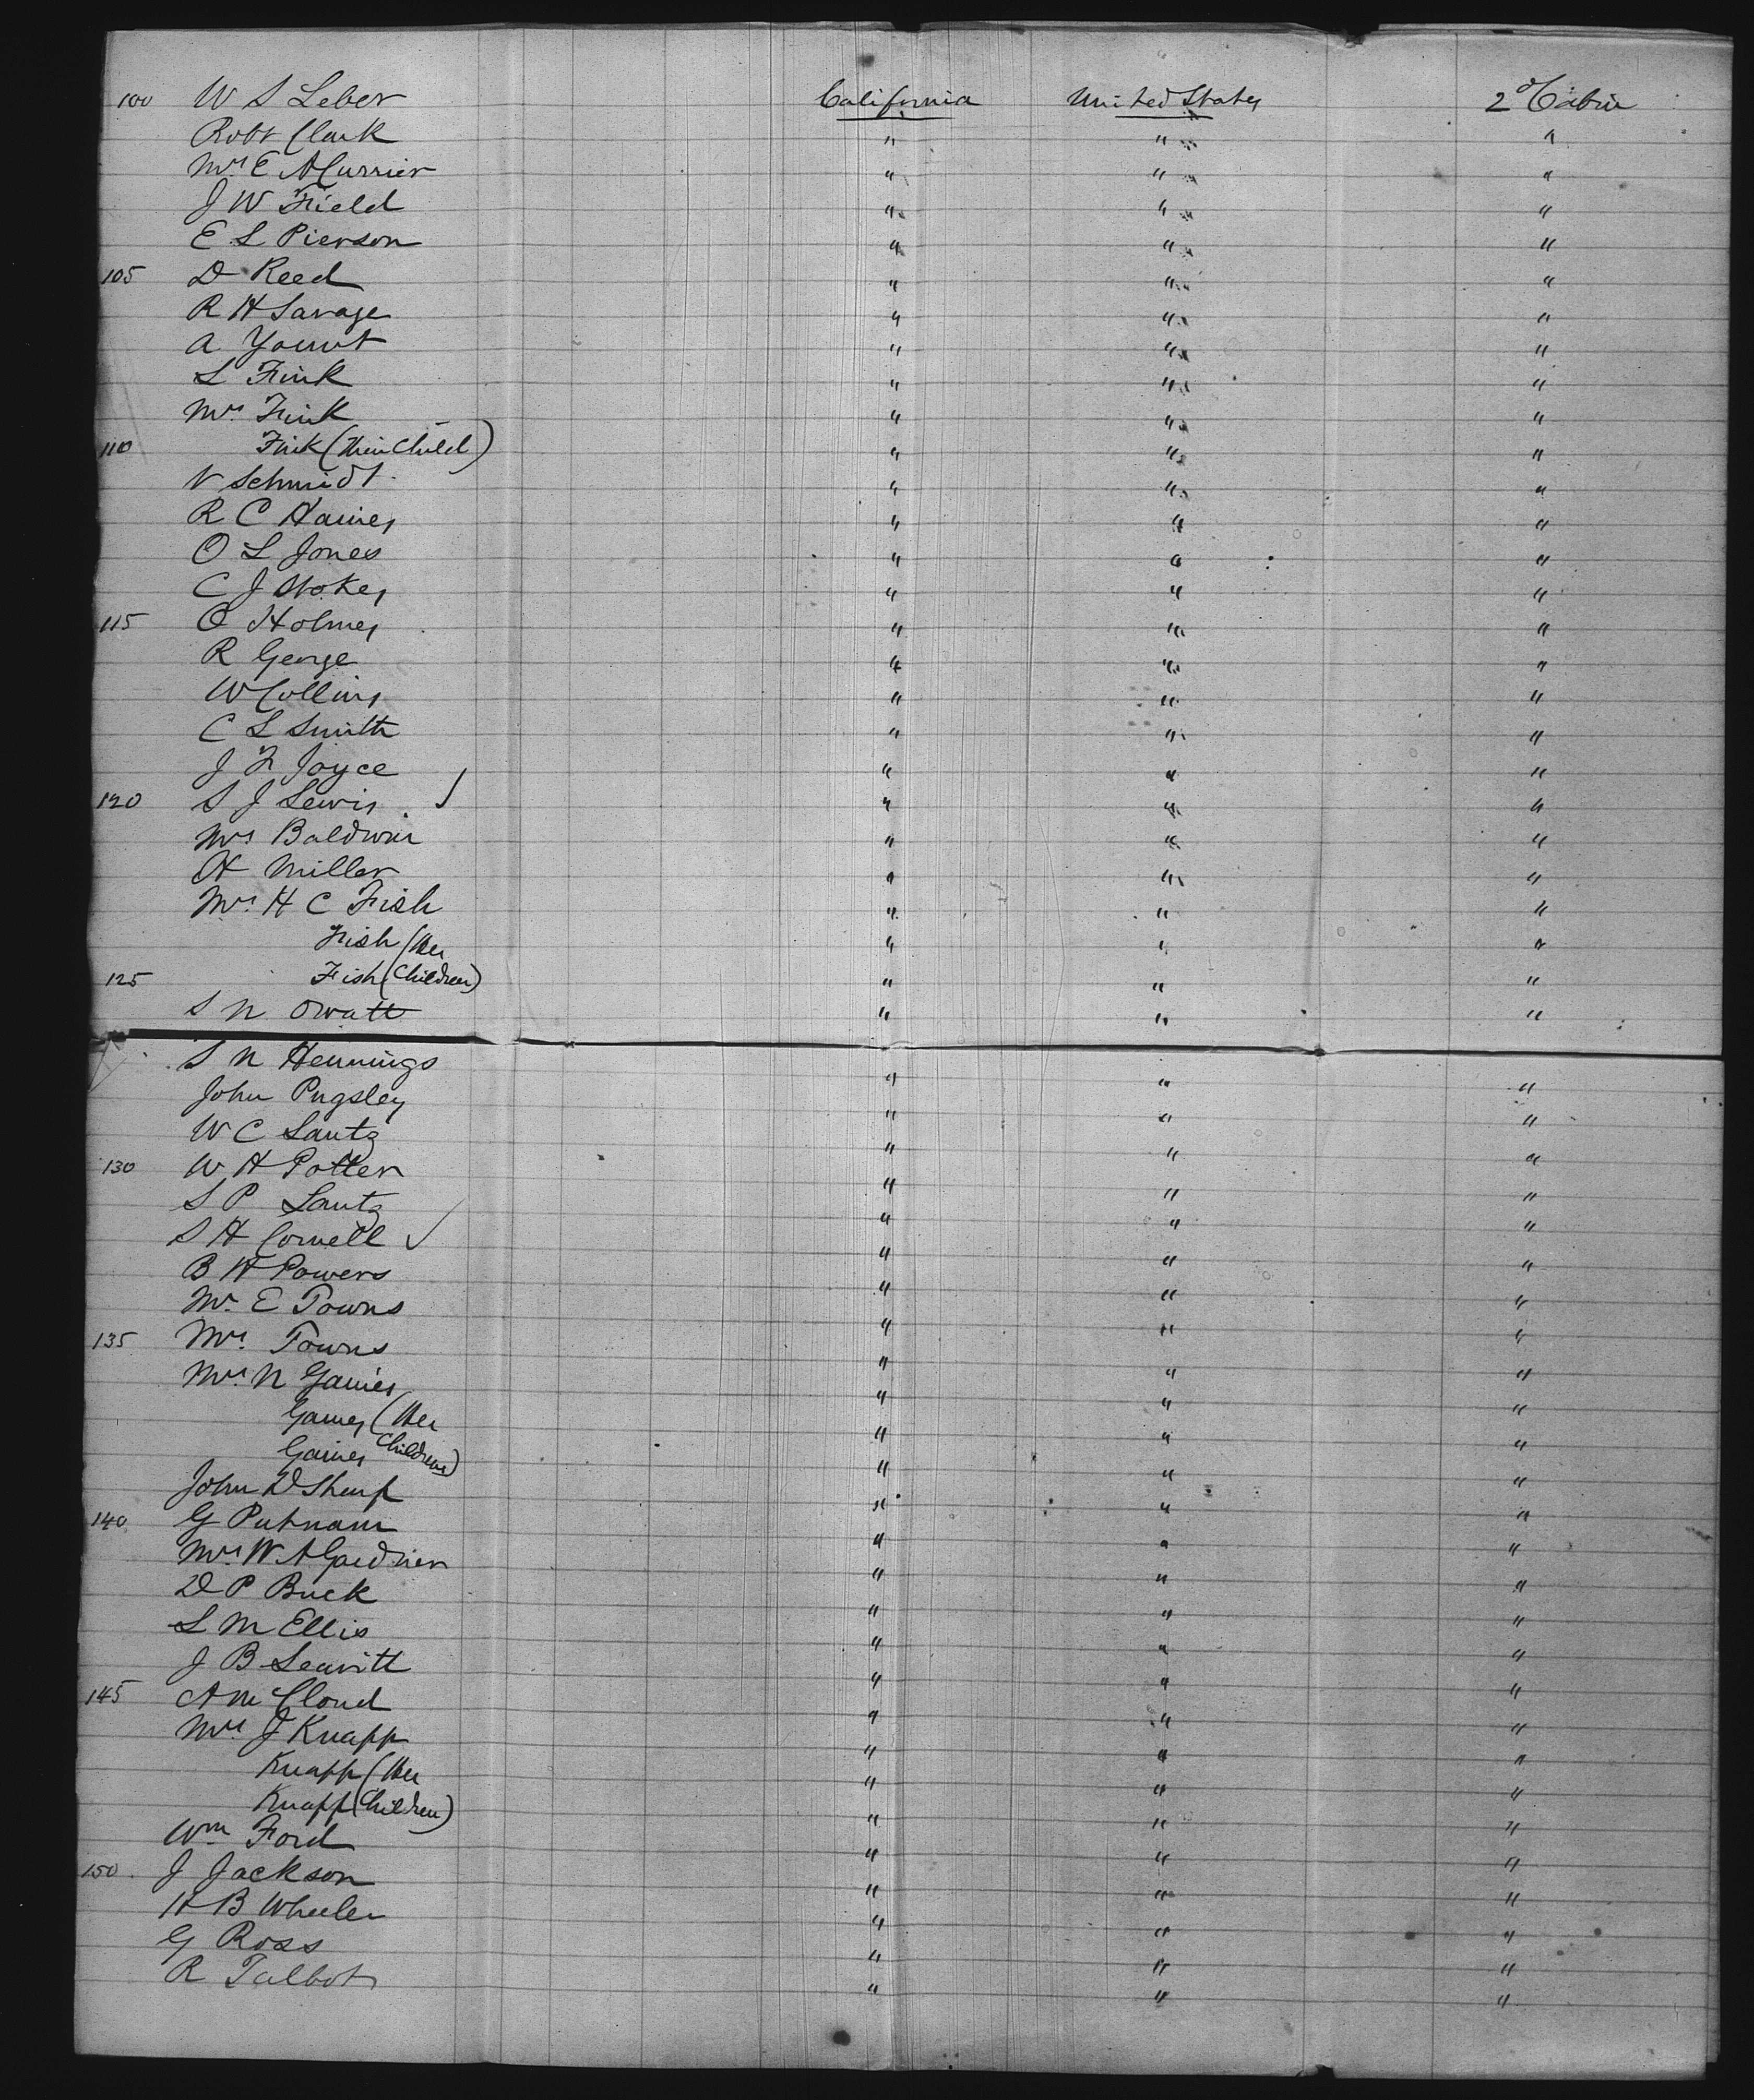 100 W S Leber California United States 2d Cabin
Robt Clark " " "
Mrs E A Currier " " "
J W Field " " "
E L Pierson " " "
105 D Reed " " "
R H Savage " " "
A Yount " " "
L Fink " " "
Mrs Fink " " "
110 Fink (Their Child) " " "
V Schmidt " " "
R C Haines " " "
O L Jones " " "
C J Stokes " " "
115 O Holmes " " "
R George " " "
W Collins " " "
C L Smith " " "
J F Joyce " " "
120 S J Lewis " " "
Mrs Baldwin " " "
H Miller " " "
Mrs H C Fish " " "
Fish (Her " " "
125 Fish Children) " " "
S N Owatt " " "
S N Hennings " " "
John Pugsley " " "
W C Lantz " " "
130 W H Potter " " "
S P Lantz " " "
S H Cornell " " "
B H Powers " " "
Mr E Towns " " "
135 Mrs Towns " " "
Mrs N Gaines " " "
Gaines (Her " " "
Gaines Children) " " "
John D Sharp " " "
140 G Putnam " " "
Mrs W A Gardner " " "
D P Buck " " "
L M Ellis " " "
J B Leavitt " " "
145 A McCloud " " "
Mrs J Knapp " " "
Knapp (Her " " "
Knapp Children) " " "
Wm Ford " " "
150 J Jackson " " "
H B Wheeler " " "
G Ross " " "
R Talbot " " "